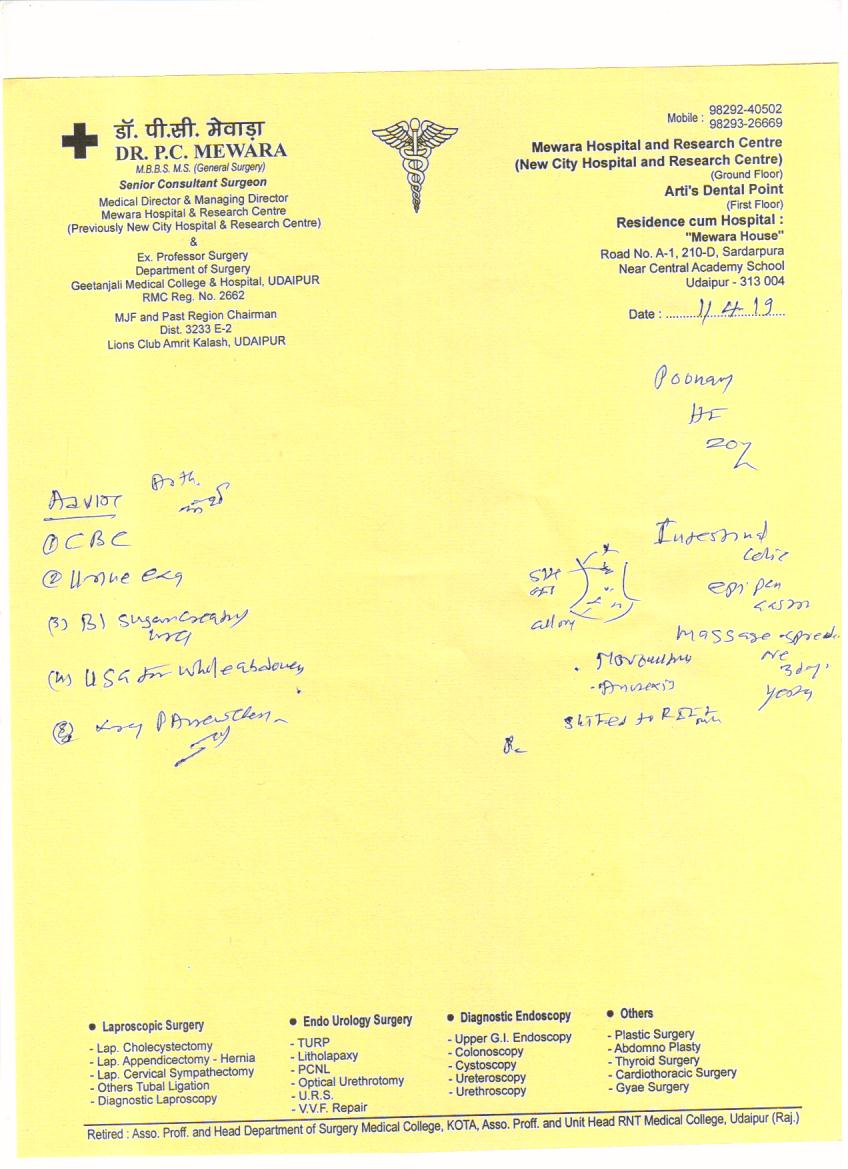 डॉ. पी.सी. मेवाड़ा
DR. P.C. MEWARA
M.B.B.S. M.S. (General Surgery)
Senior Consultant Surgeon
Medical Director & Managing Director
Mewara Hospital & Research Centre
(Previously New City Hospital & Research Centre)
&
Ex. Professor Surgery
Department of Surgery
Geetanjali Medical College & Hospital, UDAIPUR
RMC Reg. No. 2662
MJF and Past Region Chairman
Dist. 3233 E-2
Lions Club Amrit Kalash, UDAIPUR
Mobile : 98292-40502
98293-26669
Mewara Hospital and Research Centre
(New City Hospital and Research Centre)
(Ground Floor)
Arti's Dental Point
(First Floor)
Residence cum Hospital :
"Mewara House"
Road No. A-1, 210-D, Sardarpura
Near Central Academy School
Udaipur - 313 004
Date : 11.4.19
Poonam
① CBC
②
(3) Bl sugar
(4) USG for whole abdomen
Intestinal
colic
massage
3 days
● Laproscopic Surgery
- Lap. Cholecystectomy
- Lap. Appendicectomy - Hernia
- Lap. Cervical Sympathectomy
- Others Tubal Ligation
- Diagnostic Laproscopy
● Endo Urology Surgery
- TURP
- Litholapaxy
- PCNL
- Optical Urethrotomy
- U.R.S.
- V.V.F. Repair
● Diagnostic Endoscopy
- Upper G.I. Endoscopy
- Colonoscopy
- Cystoscopy
- Ureteroscopy
- Urethroscopy
● Others
- Plastic Surgery
- Abdomno Plasty
- Thyroid Surgery
- Cardiothoracic Surgery
- Gyae Surgery
Retired : Asso. Proff. and Head Department of Surgery Medical College, KOTA, Asso. Proff. and Unit Head RNT Medical College, Udaipur (Raj.)